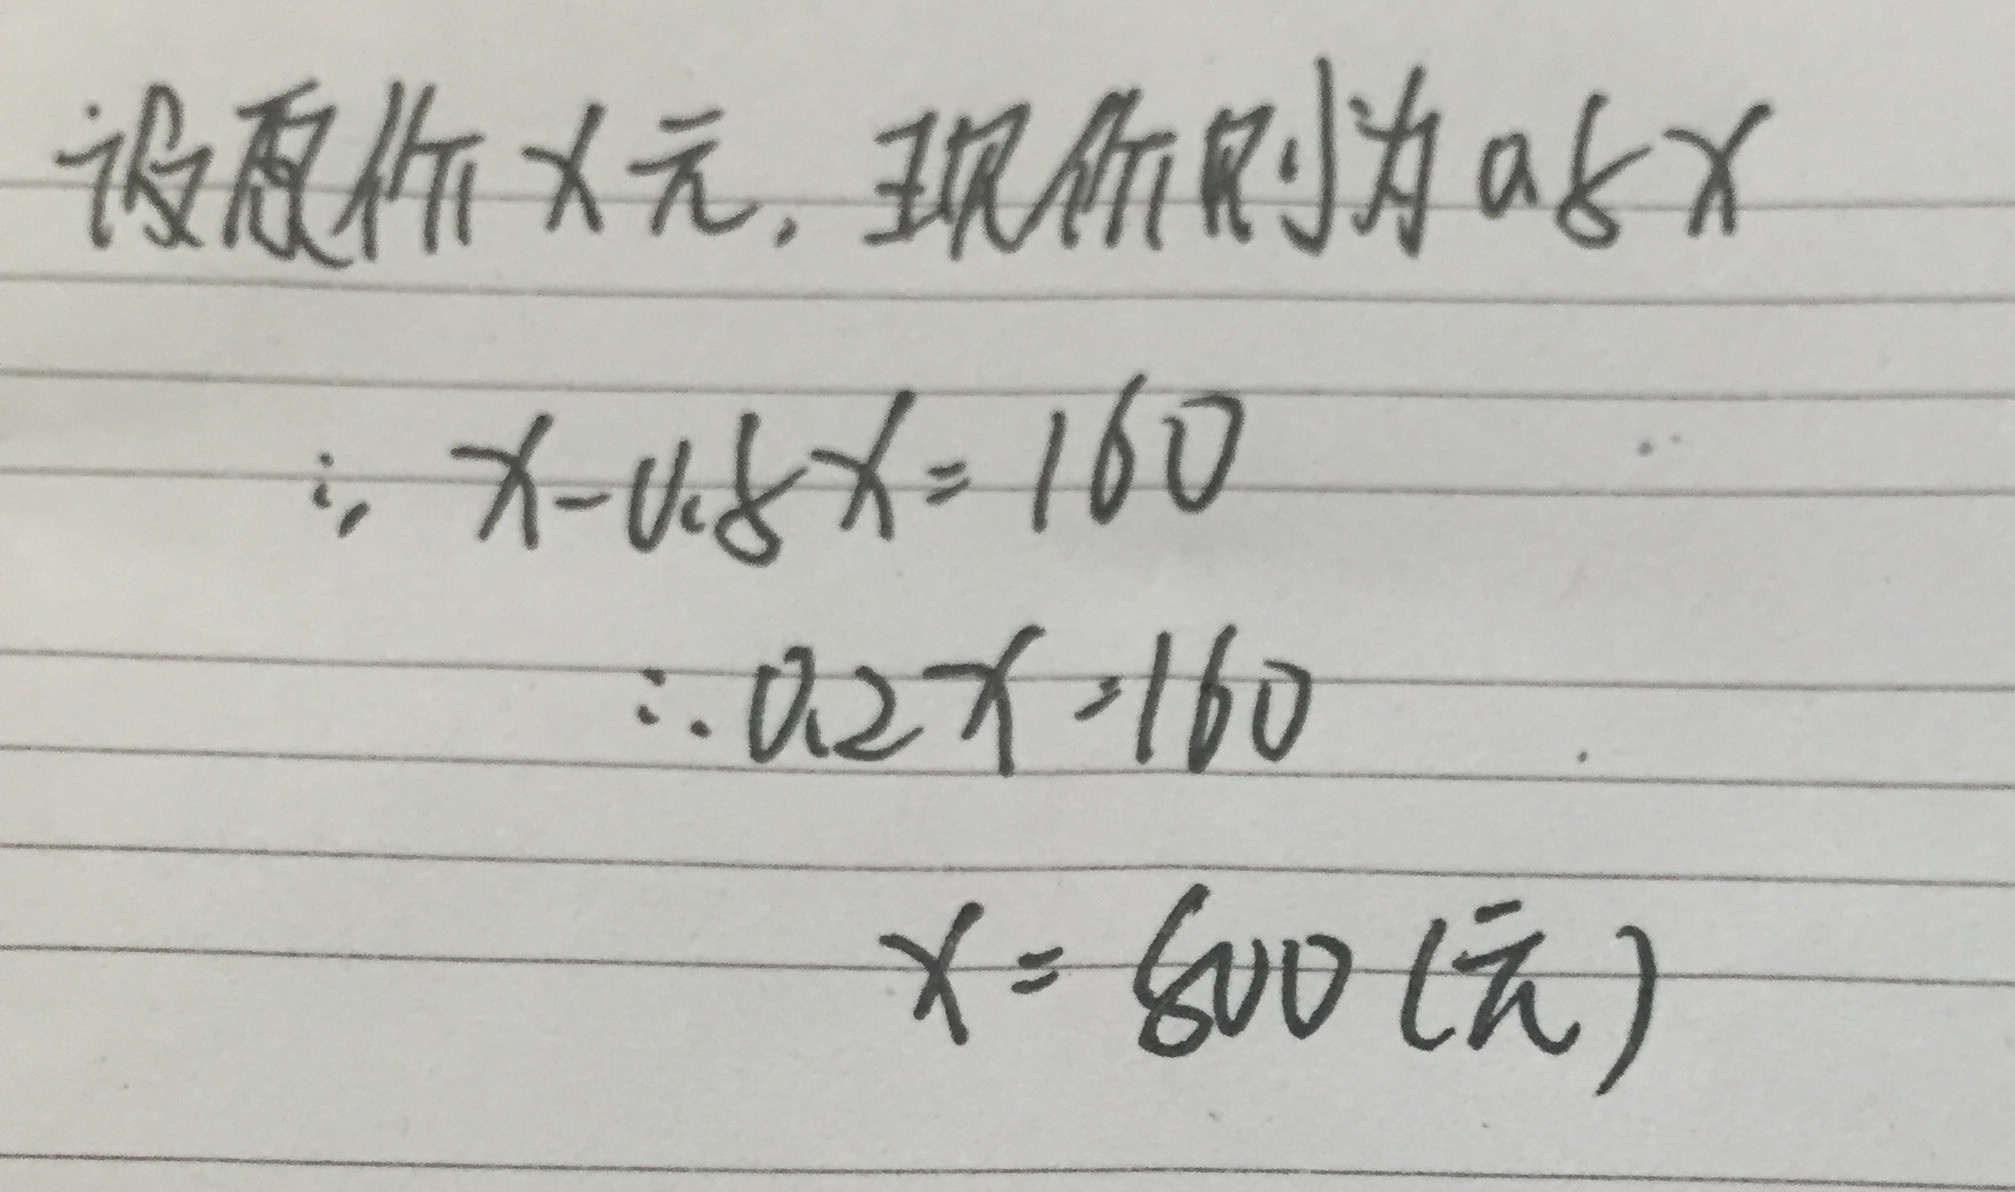 设原价x元,现价则为0.8x
∴ x-0.8x=160
∴0.2x=160
x=800(元)